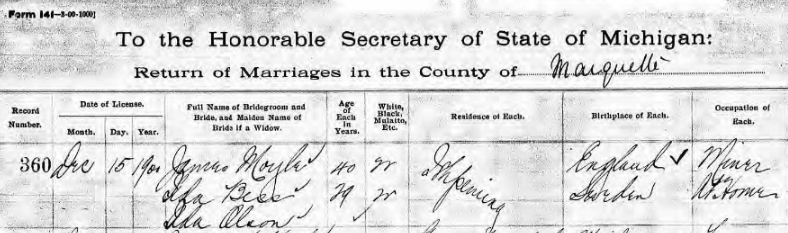 Form 141-3-00-1000]
To the Honorable Secretary of State of Michigan:
Return of Marriages in the County of Marquette
Record Number.
Date of License.
Month. Day. Year.
Full Name of Bridegroom and Bride, and Maiden Name of Bride if a Widow.
Age of Each in Years.
White, Black, Mulatto, Etc.
Residence of Each.
Birthplace of Each.
Occupation of Each.
360 Dec 15 1900 James Moyle 40 W Ishpeming England ✓ Miner
Ida Bess 29 W Sweden At Home
Ida Olson